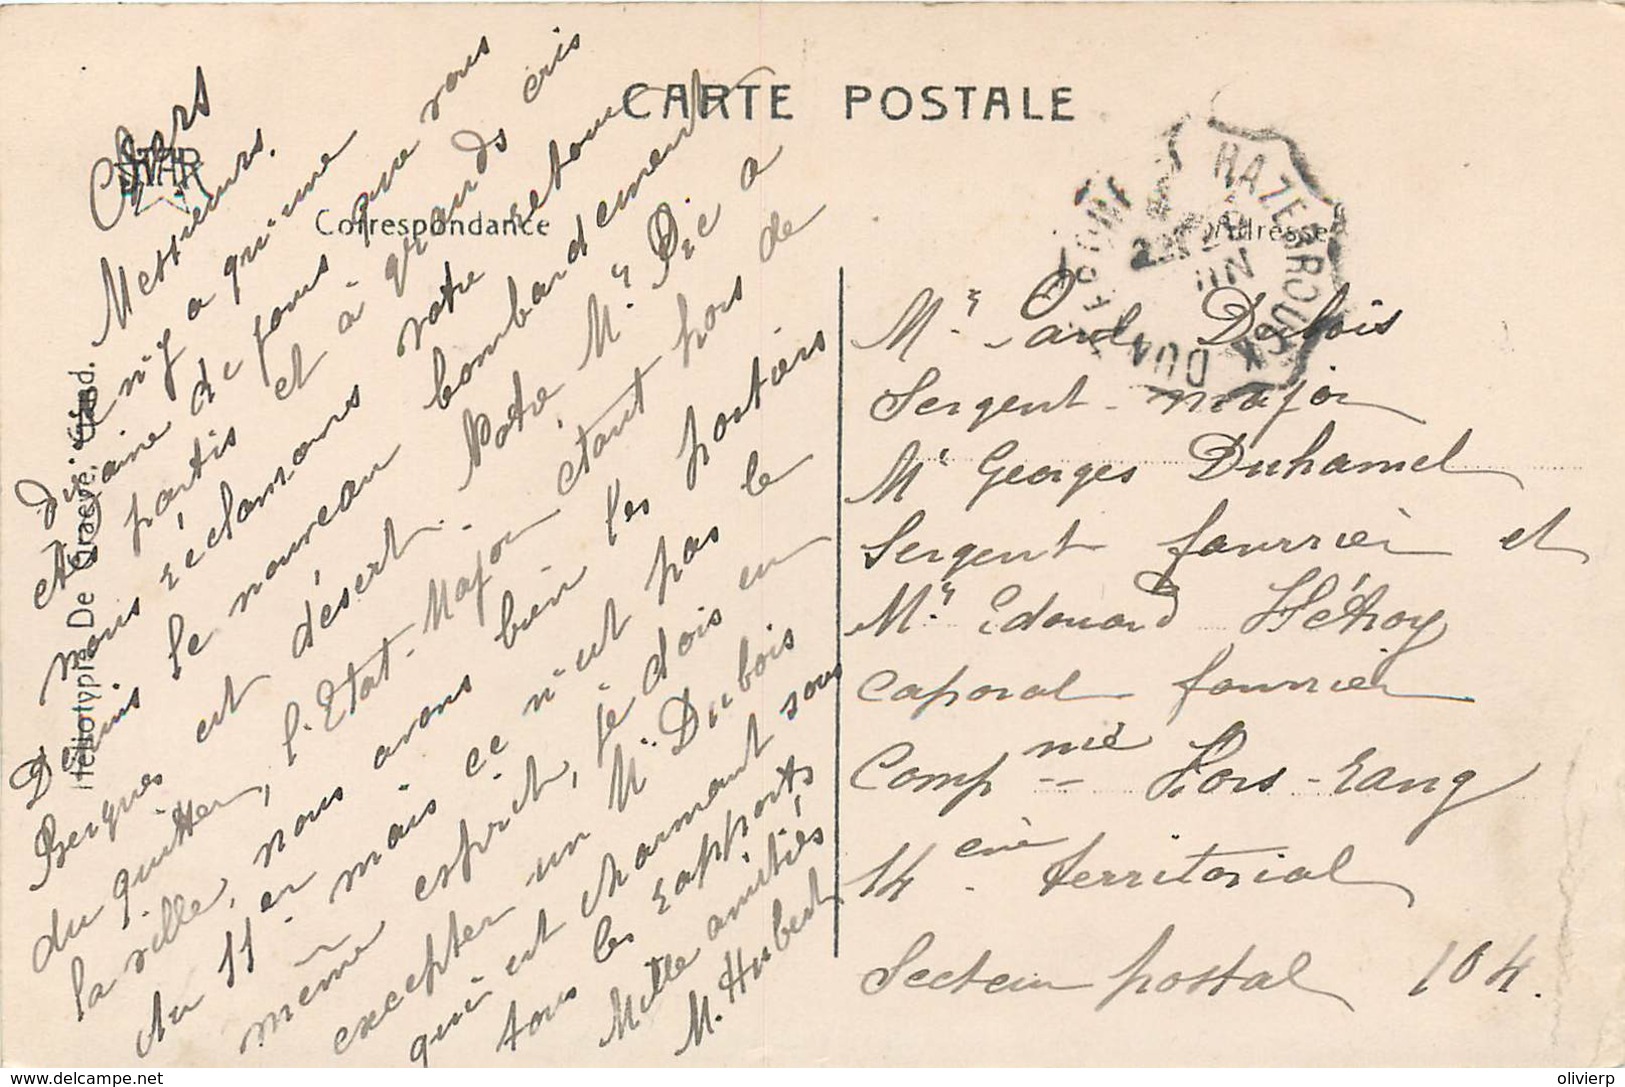 CARTE POSTALE
Correspondance
Adresse
STAR
Héliotypie De Graeve, Gand.
HAZEBROUCK
Chers
Messieurs.
Ce n'y a qu'une
dizaine de jours que vous
êtes partis et à grands cris
nous réclamons votre retour
Depuis le nouveau bombardement
Bergues est désert. Notre Mr Pic a
du quitter, l'Etat-Major étant hors de
la ville, nous avons bien les postiers
du 11 en mais ce n'est pas le
même esprit, je dois en
excepter un Mr Dubois
qui est charmant sous
tous les rapports
Mille amitiés
M. Hubert
Mr Paul Debois
Sergent-major
Mr Georges Duhamel
Sergent fourrier et
Mr Edouard Hétroy
Caporal fourrier
Compnie Hors-rang
14ème territorial
Secteur postal 104.
delcampe.net
olivierp